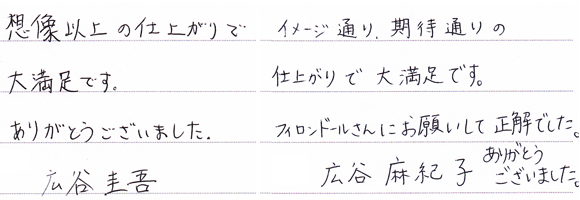 想像以上の仕上がりで
大満足です。
ありがとうございました.
広谷圭吾
イメージ通り、期待通りの
仕上がりで大満足です。
フィロンドールさんにお願いして正解でした。
広谷麻紀子
ありがとう
ございました。